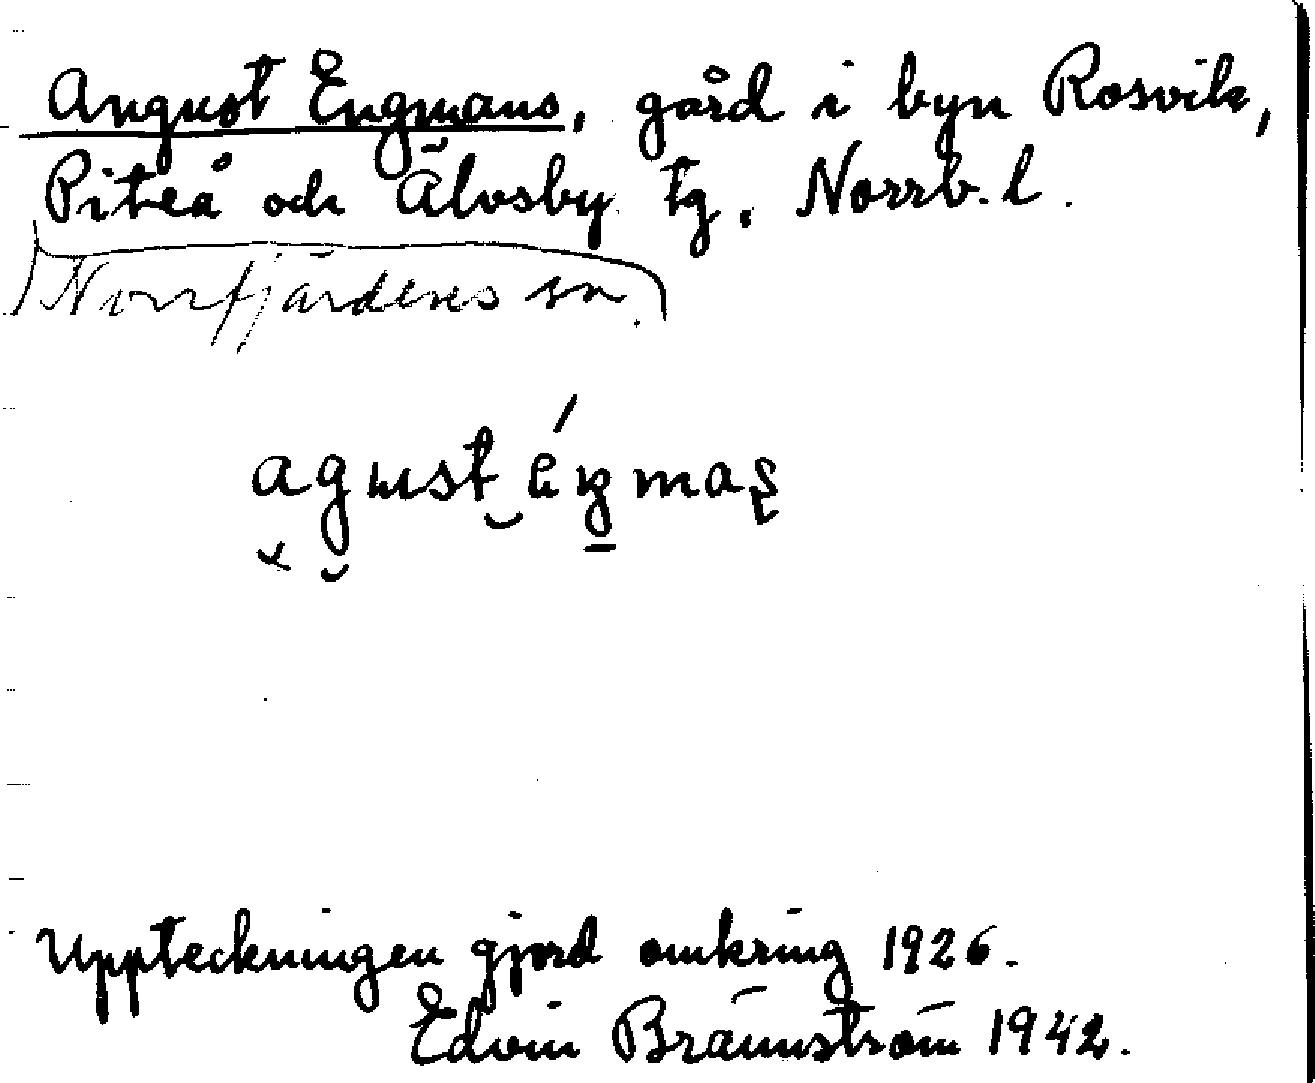 August Engmans, gård i byn Rosvik,
Piteå och Älvsby tg, Norrb. l.
Norrfjärdens sn.
Uppteckningen gjord omkring 1926.
Edvin Brännström 1942.